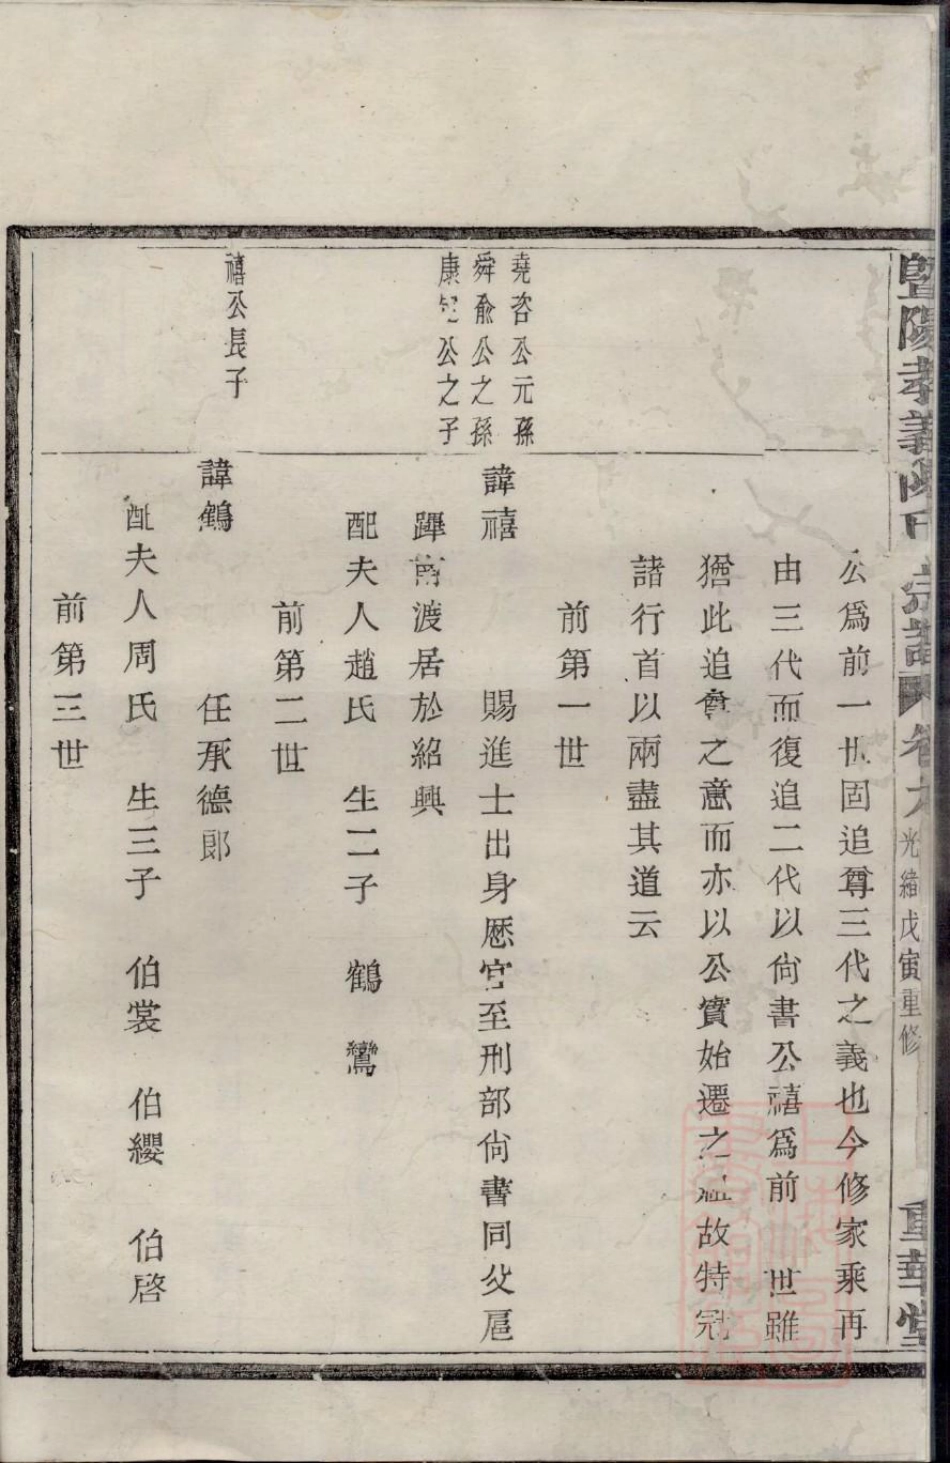 暨陽孝義陳氏宗譜 卷九 光緒戊寅重修 重華堂
公爲前一世固追尊三代之義也今修家乘再
由三代而復追二代以尙書公禧爲前 世雖
猶此追尊之意而亦以公實始遷之祖故特冠
諸行首以兩盡其道云
前第一世
堯咨公元孫
舜俞公之孫
康 公之子
諱禧 賜進士出身厯官至刑部尙書同父扈
蹕南渡居於紹興
配夫人趙氏 生二子 鶴 鸞
前第二世
禧公長子
諱鶴 任承德郎
配夫人周氏 生三子 伯裳 伯纓 伯啓
前第三世